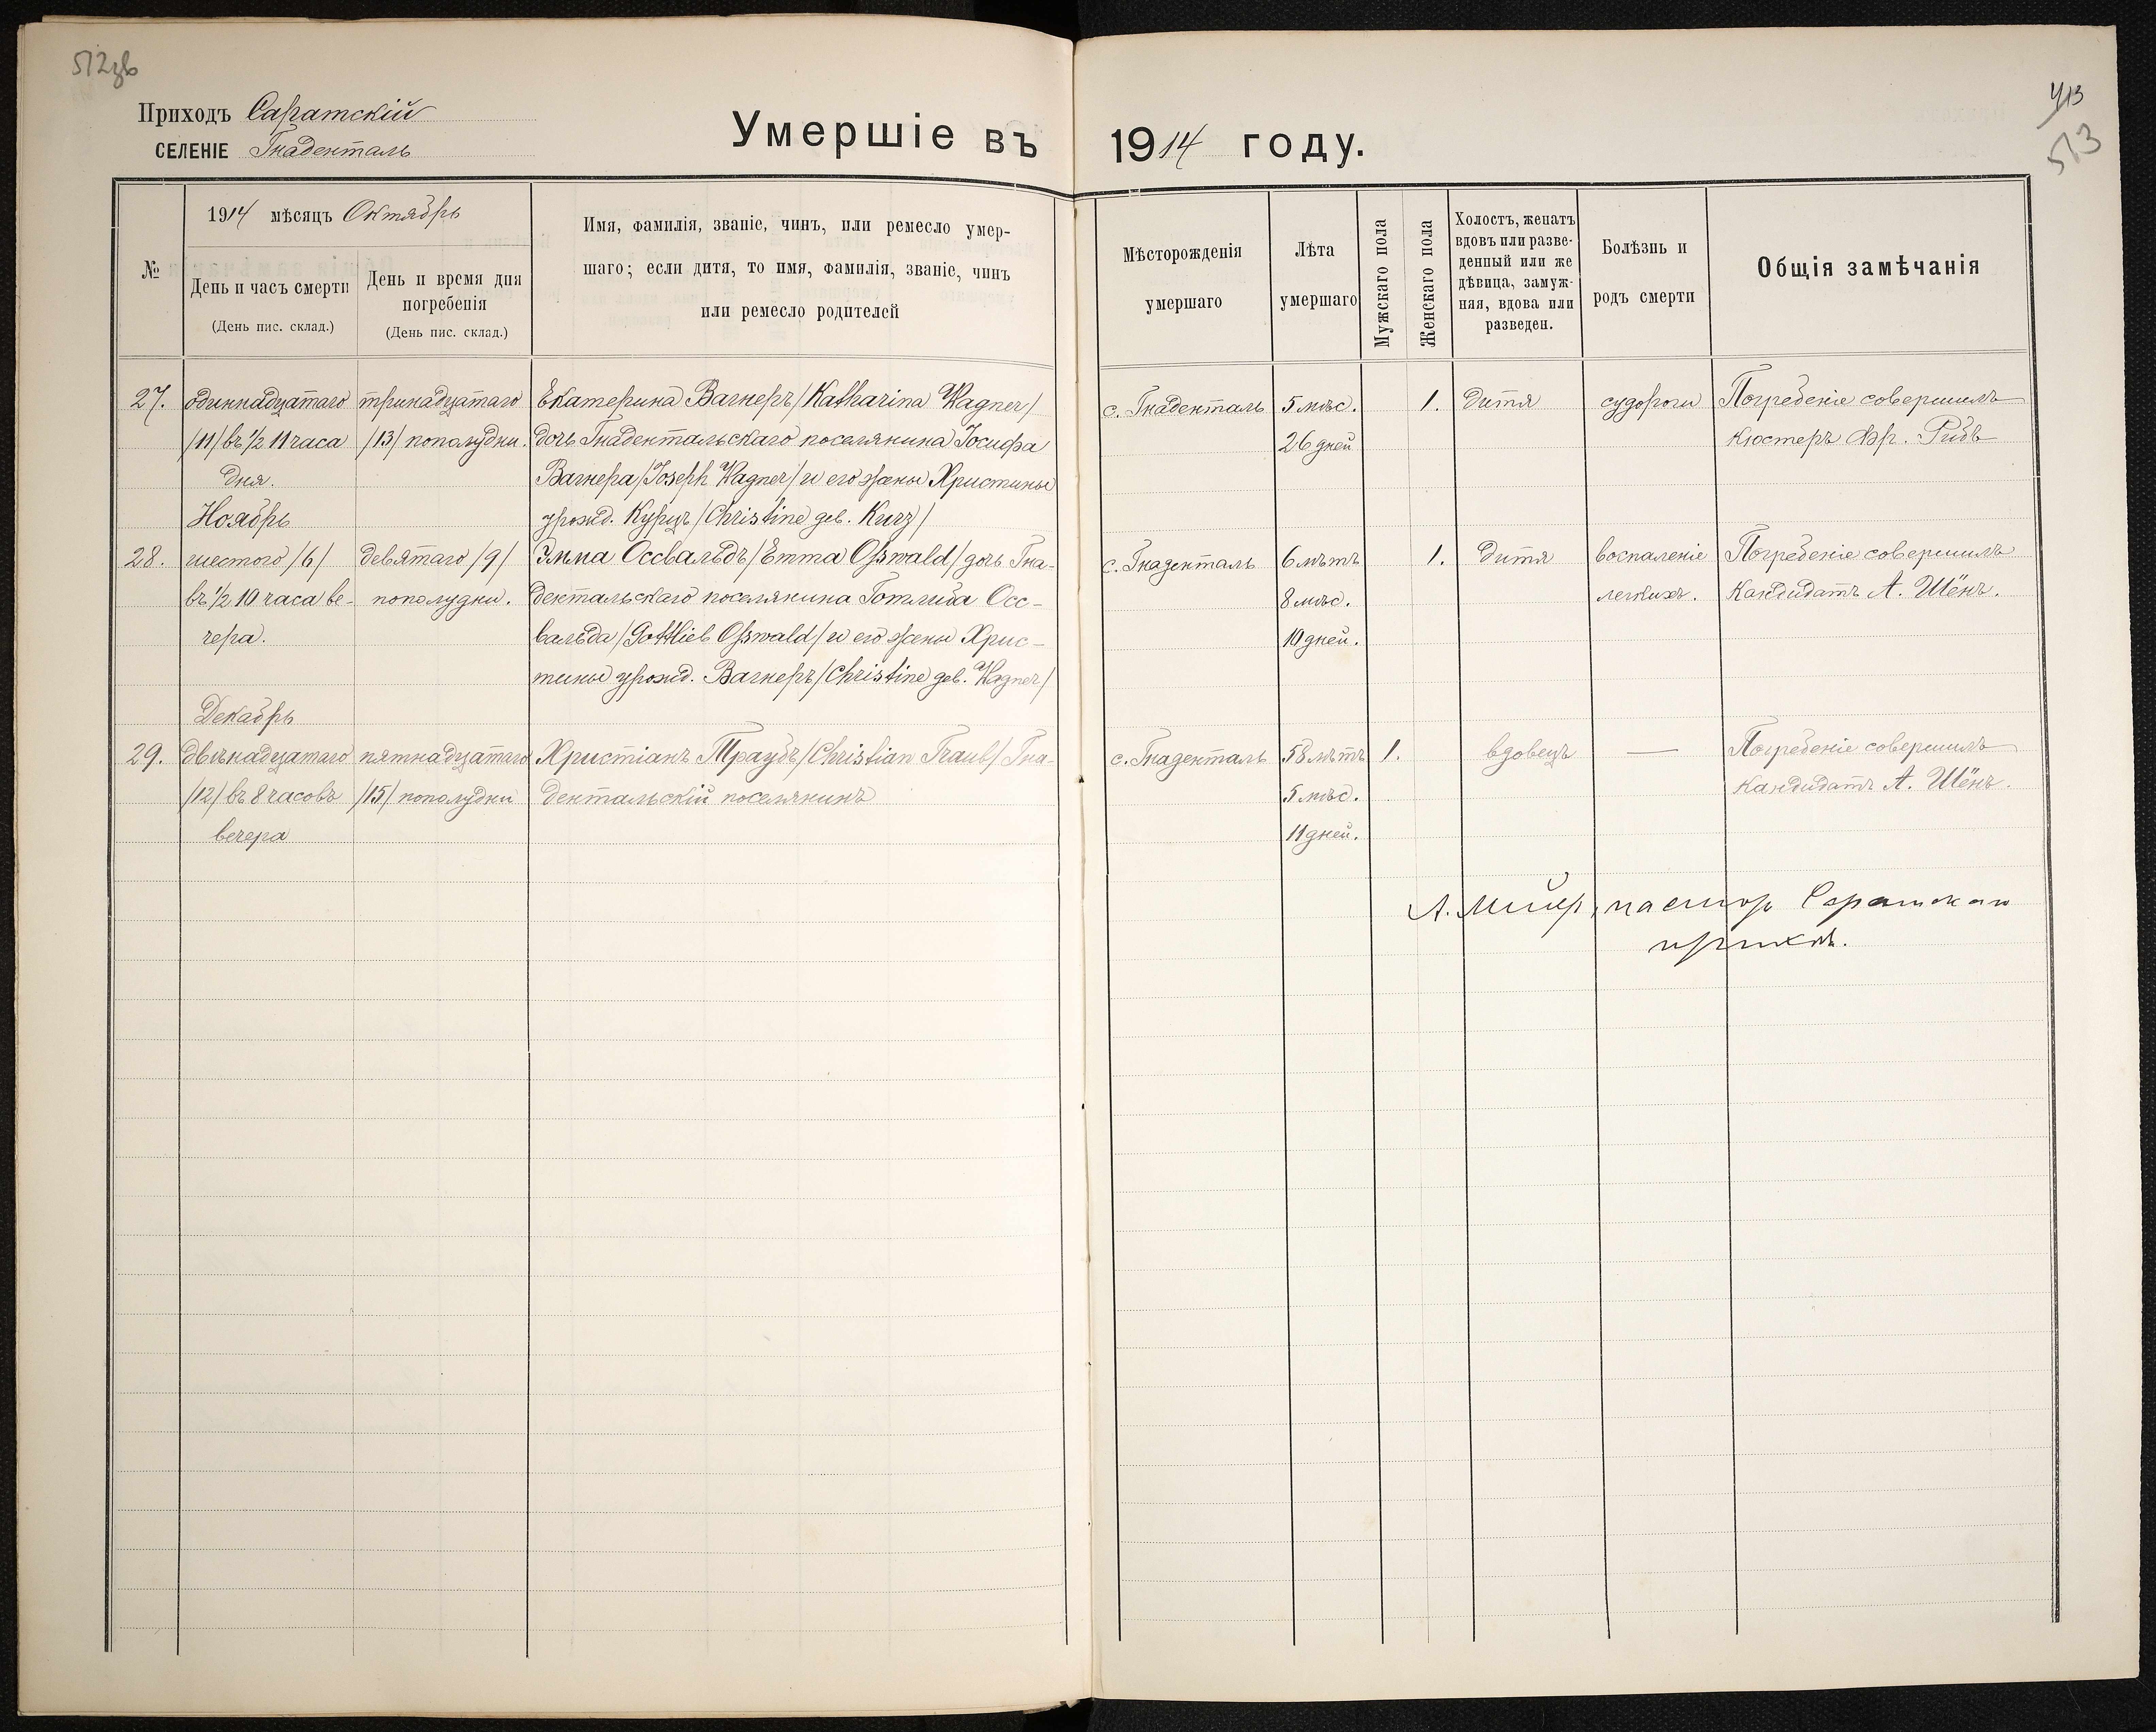 512зв
Приходъ Саратскій
СЕЛЕНІЕ Гнаденталь
Умершіе въ 1914 году.
513
№
1914 мѣсяцъ Октябрь
День и часъ смерти
(День пис. склад.)
День и время дня
погребенія
(День пис. склад.)
Имя, фамилія, званіе, чинъ, или ремесло умер-
шаго; если дитя, то имя, фамилія, званіе, чинъ
или ремесло родителей
Мѣсторожденія
умершаго
Лѣта
умершаго
Мужскаго пола
Женскаго пола
Холостъ, женатъ
вдовъ или разве-
денный или же
дѣвица, замуж-
няя, вдова или
разведен.
Болѣзнь и
родъ смерти
Общія замѣчанія
27.
одиннадцатаго
/11/ въ 1/2 11 часа
дня.
тринадцатаго
/13/ пополудни.
Екатерина Вагнеръ /Katharina Wagner/
дочь Гнадентальскаго поселянина Іосифа
Вагнера /Joseph Wagner/ и его жены Христины
урожд. Курцъ /Christine geb. Kurz/
с. Гнаденталь
5 мѣс.
26 дней
1.
дитя
судороги
Погребеніе совершилъ
кюстеръ Фр. Рибъ
Ноябрь
28.
шестого /6/
въ 1/2 10 часа ве-
чера.
девятаго /9/
пополудни.
Эмма Оссвальдъ /Emma Oßwald/ дочь Гна-
дентальскаго поселянина Готлиба Осс-
вальда /Gottlieb Oßwald/ и его жены Хрис-
тины урожд. Вагнеръ /Christine geb. Wagner/
с. Гнаденталь
6 лѣтъ
8 мѣс.
10 дней.
1.
дитя
воспаленіе
легкихъ.
Погребеніе совершилъ
Кандидатъ А. Шёнъ.
Декабрь
29.
двѣнадцатаго
/12/ въ 8 часовъ
вечера
пятнадцатаго
/15/ пополудни
Христіанъ Траубъ /Christian Traub/ Гна-
дентальскій поселянинъ
с. Гнаденталь
58 лѣтъ
5 мѣс.
11 дней.
1.
вдовецъ
—
Погребеніе совершилъ
Кандидатъ А. Шёнъ.
пасторъ Саратскаго